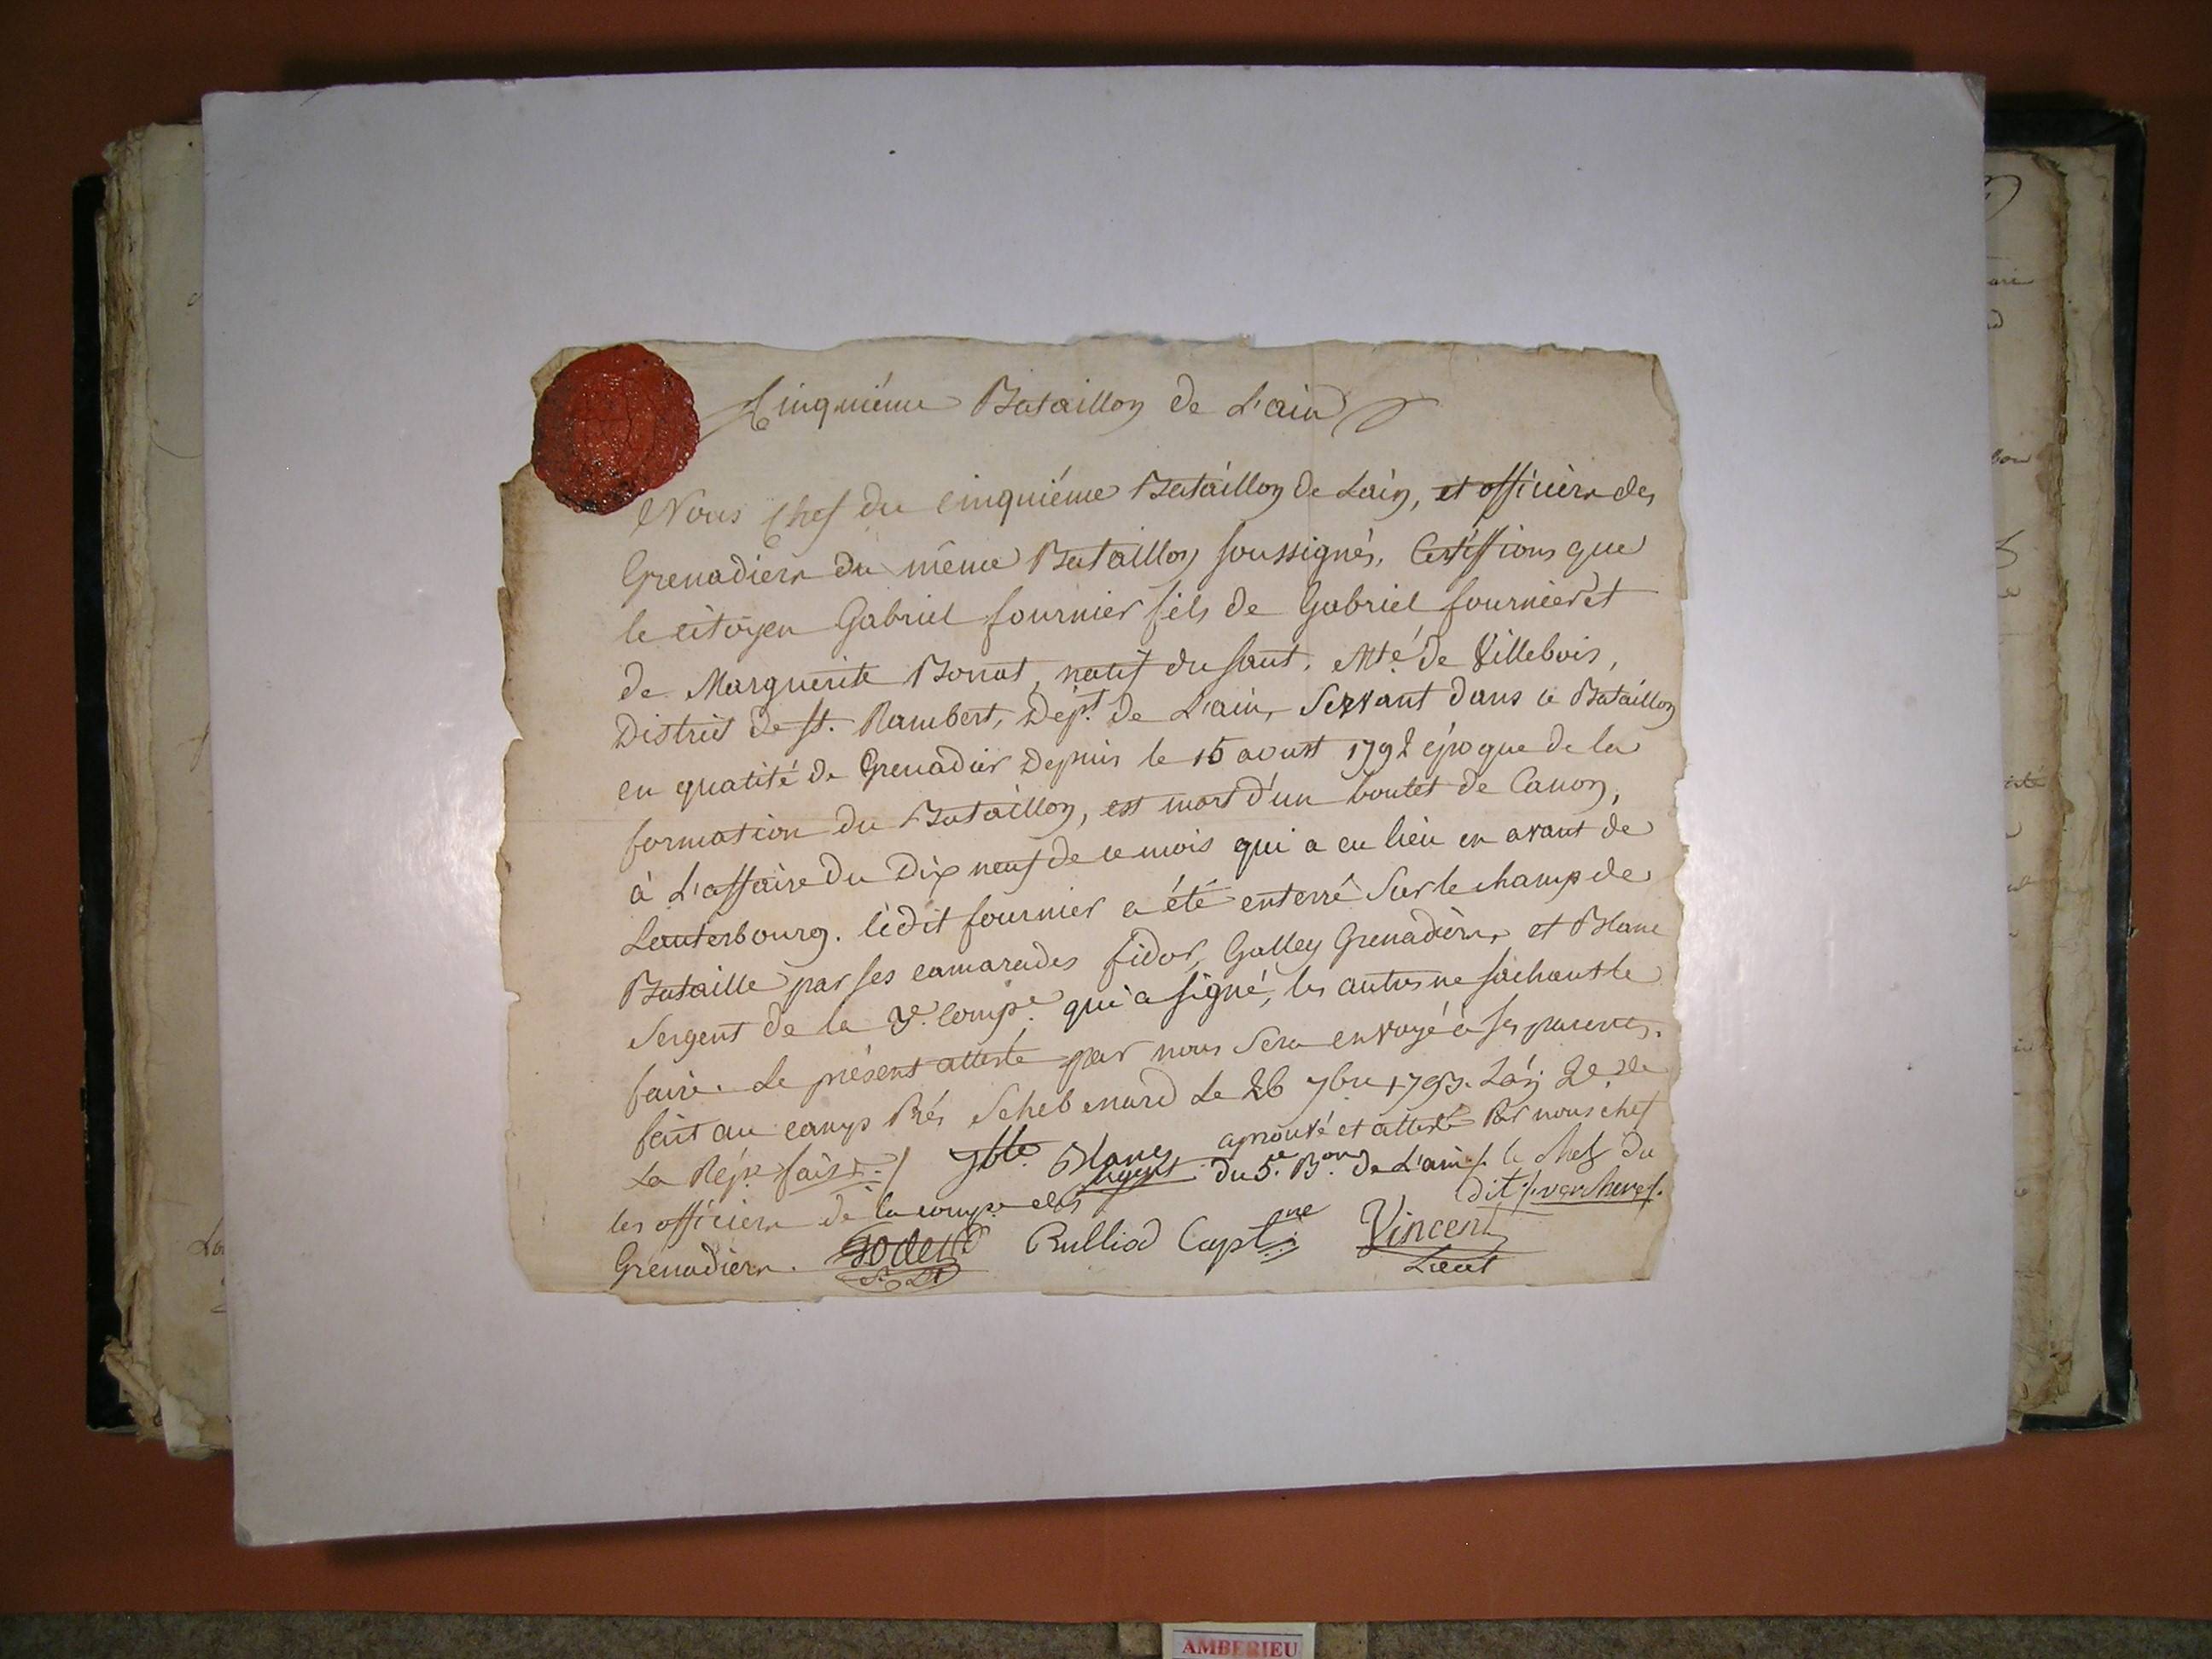 Cinquiéme Bataillon de L'ain
Nous Chef du cinquiéme Bataillon de Lain, et officiers des
Grenadiers du même Bataillon soussignés, Certiffions que
le citoyen Gabriel fournier fils de Gabriel fournier et
de Marguerite Bonat, natif du saut, Mté de Villebois,
District de st. Rambert, Dépt de L'ain, Servant dans ce Bataillon
en qualité de Grenadier Depuis le 15 aoust 1792 époque de la
formation du Bataillon, est mort d'un boulet de Canon,
à L'affaire du Dix neuf de ce mois qui a eu lieu en avant de
Lauterbourg. ledit fournier a été enterré Sur le champ de
Bataille par ses camarades fidor, Galley Grenadiers, et Blanc
Sergent de la compe qui a signé, les autres ne sachant le
faire. Le présent attesté par nous Sera envoyé à ses parents.
fait au camp Prés le 26 7bre 1793. L'an 2e de
La Répe faise./ Blanc aprouvé et attesté Par nous chef
sergent du 5e Bon de L'ain /. le chef du
les officiers de la compe des dit /.
Grenadiers. Rulliod Captne Vincent
Lieut
AMBERIEU